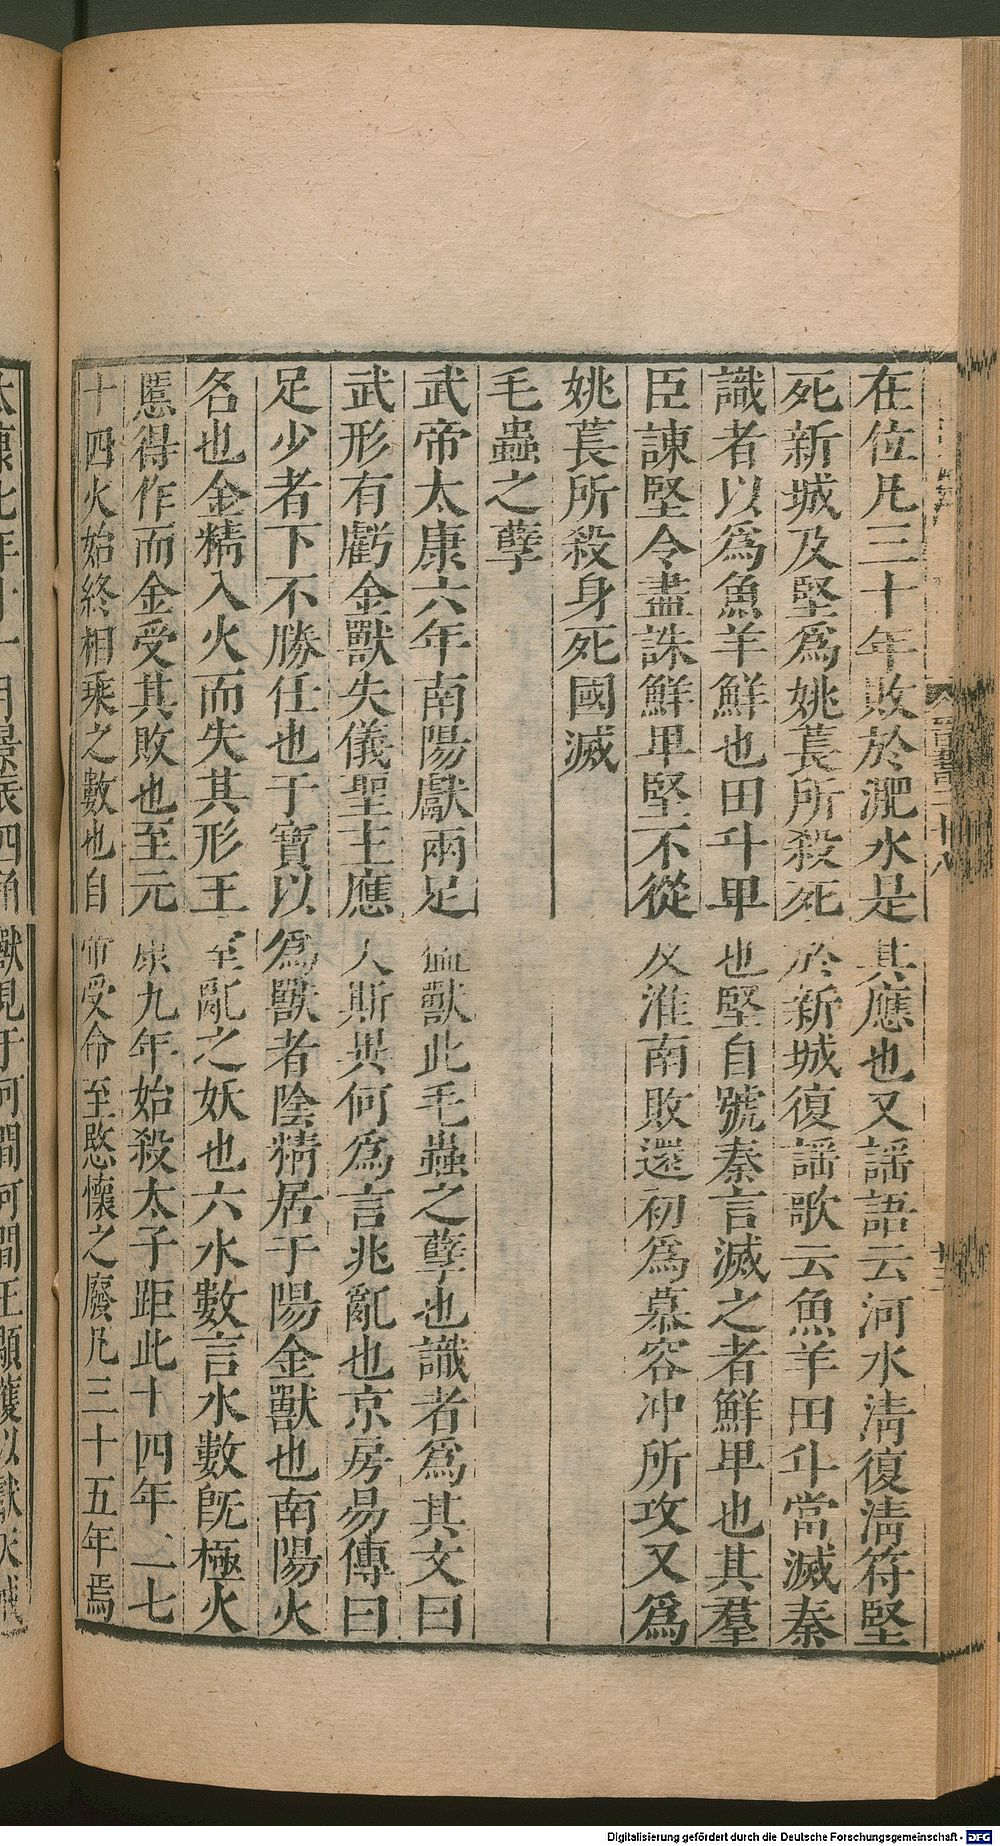 在位凡三十年敗於淝水是其應也又謡語云河水清復清符堅
死新城及堅爲姚萇所殺死於新城復謡歌云魚羊田斗當滅秦
識者以爲魚羊鮮也田斗卑也堅自號秦言滅之者鮮卑也其羣
臣諫堅令盡誅鮮卑堅不從及淮南敗還初爲慕容冲所攻又爲
姚萇所殺身死國滅
毛蟲之孽
武帝太康六年南陽獻兩足猛獸此毛蟲之孽也識者爲其文曰
武形有虧金獸失儀聖主應天斯異何爲言兆亂也京房易傳曰
足少者下不勝任也于寶以爲獸者陰精居于陽金獸也南陽火
名也金精入火而失其形王室亂之妖也六水數言水數旣極火
慝得作而金受其敗也至元康九年始殺太子距此十四年二七
十四火始終相乘之數也自帝受命至愍懷之廢凡三十五年焉
獸見于河間河間王顒獲以獻天戒
Digitalisierung gefördert durch die Deutsche Forschungsgemeinschaft - DFG